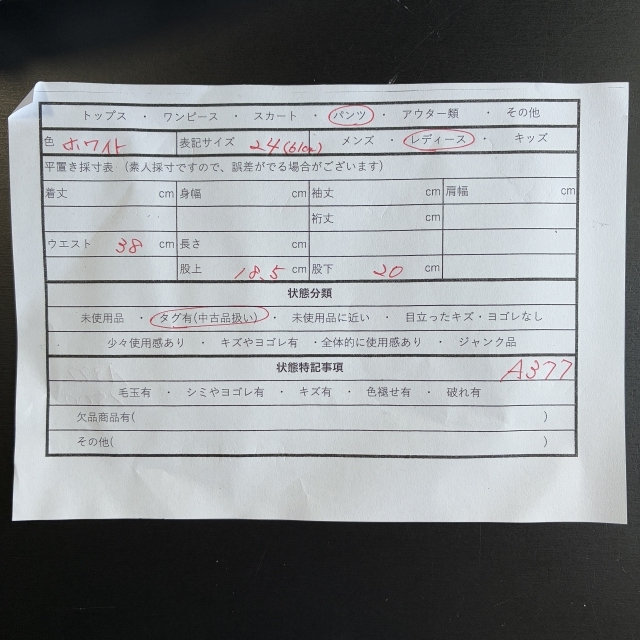 トップス ・ ワンピース ・ スカート ・ パンツ ・ アウター類 ・ その他
色 ホワイト 表記サイズ 24 メンズ ・ レディース ・ キッズ
平置き採寸表 （素人採寸ですので、誤差がでる場合がございます）
着丈 cm 身幅 cm 袖丈 cm 肩幅 cm
裄丈 cm
ウエスト 38 cm 長さ cm
股上 18.5 cm 股下 20 cm
状態分類
未使用品 ・ タグ有(中古品扱い) ・ 未使用品に近い ・ 目立ったキズ・ヨゴレなし
少々使用感あり ・ キズやヨゴレ有 ・全体的に使用感あり ・ ジャンク品
状態特記事項 A377
毛玉有 ・ シミやヨゴレ有 ・ キズ有 ・ 色褪せ有 ・ 破れ有
欠品商品有( )
その他( )